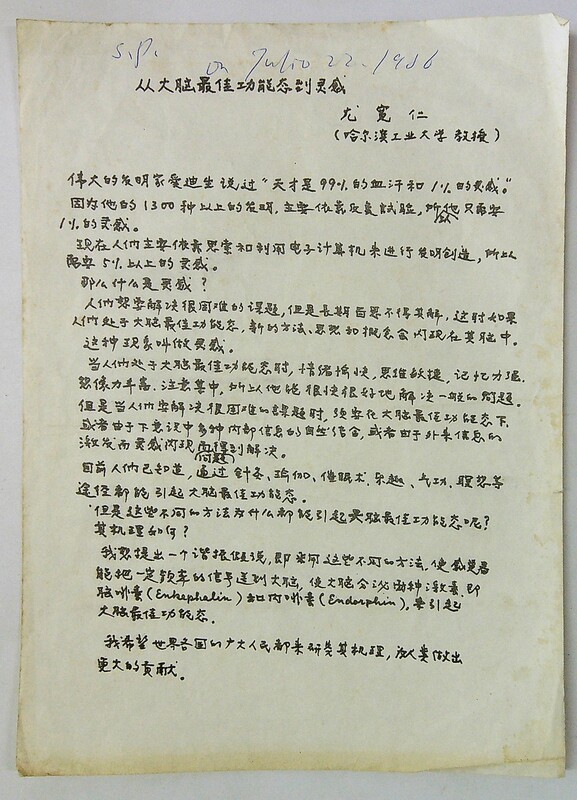 S.P.
on Julio 22. 1986
从大脑最佳功能态到灵感
尤宽仁
(哈尔滨工业大学 教授)
伟大的发明家爱迪生说过“天才是99%的血汗和1%的灵感。”
因为他的1300种以上的发明,主要依靠反复试验,所以他只需要
1%的灵感。
现在人们主要依靠思索和利用电子计算机来进行发明创造,所以
需要5%以上的灵感。
那么什么是灵感?
人们想要解决很困难的课题,但是长期百思不得其解,这时如果
人们处于大脑最佳功能态,新的方法、思想和概念会闪现在其脑中。
这种现象叫做灵感。
当人们处于大脑最佳功能态时,情绪愉快,思维敏捷,记忆力强,
想像力丰富,注意集中,所以他能很快很好地解决一般的问题。
但是当人们要解决很困难的課题时,须要在大脑最佳功能态下,
或者由于下意识中多种内部信息的自然结合,或者由于外来信息的
激发而灵感闪现,问题得到解决。
目前人们已知道,通过针灸、瑜伽、催眠术、乐趣、气功、联想等
途径都能引起大脑最佳功能态。
但是这些不同的方法为什么都能引起大脑最佳功能态呢?
其机理如何?
我想提出一个谐振假说,即采用这些不同的方法,使感受器
能把一定频率的信号送到大脑,使大脑分泌两种激素,即
脑啡素(Enkephalin)和内啡素(Endorphin),来引起
大脑最佳功能态。
我希望世界各国的广大人民都来研究其机理,为人类做出
更大的贡献。